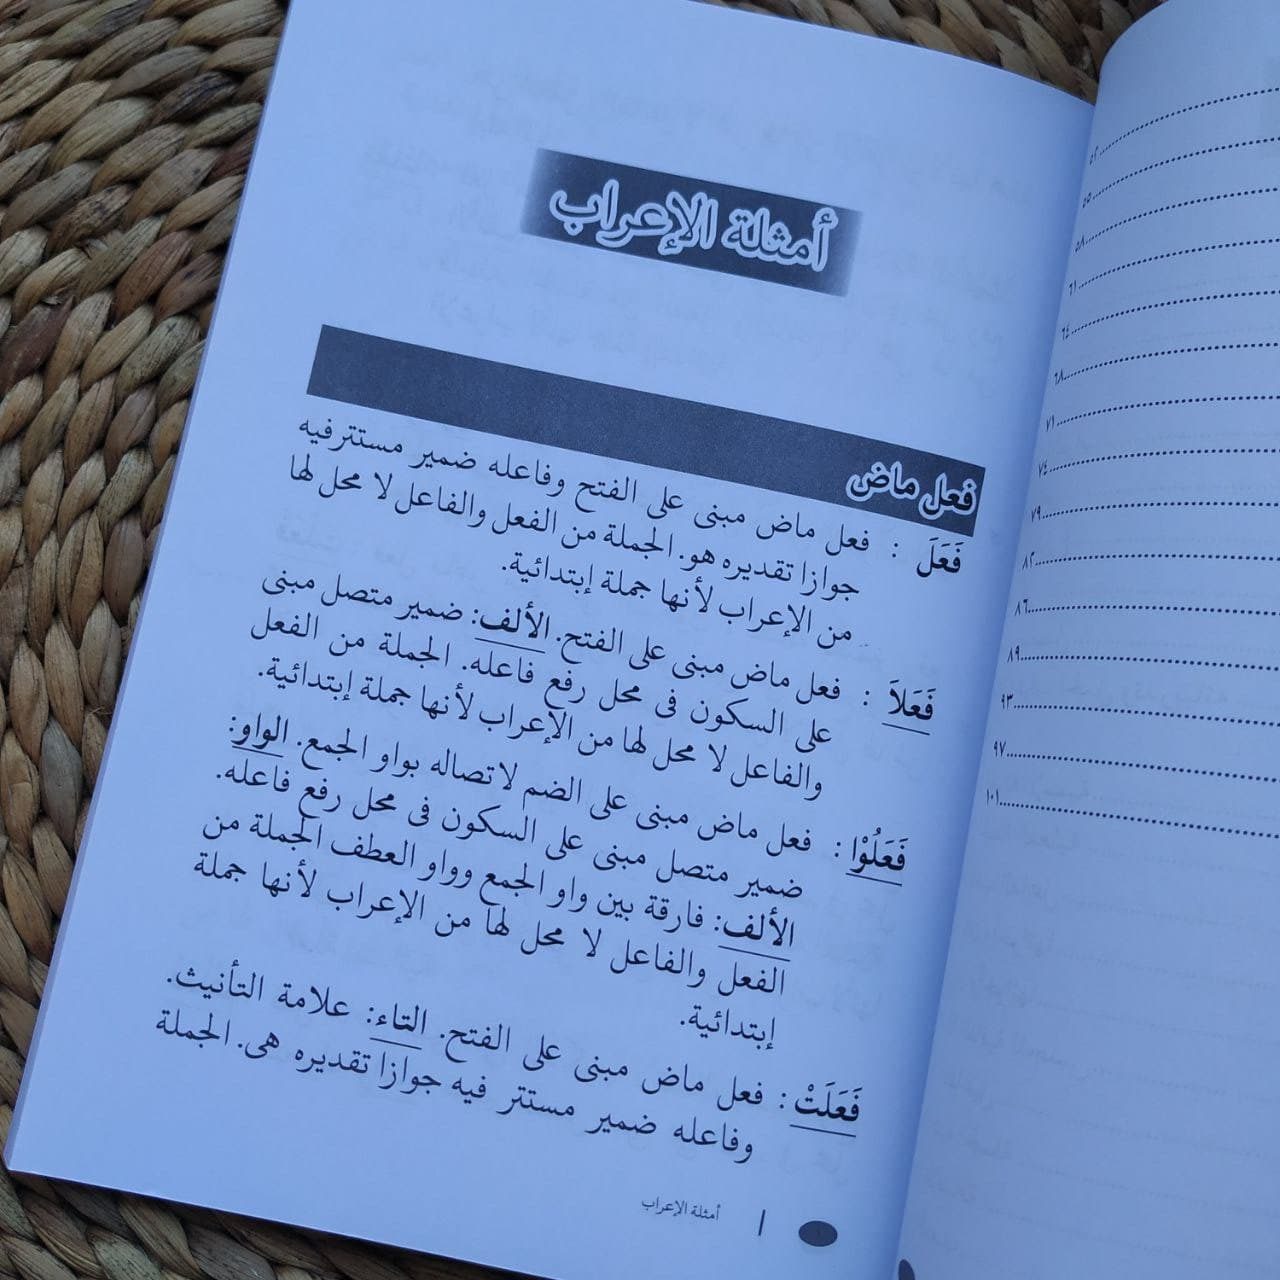 أمثلة الإعراب
فعل ماض
فَعَلَ : فعل ماض مبنى على الفتح وفاعله ضمير مستترفيه
جوازا تقديره هو. الجملة من الفعل والفاعل لا محل لها
من الإعراب لأنها جملة إبتدائية.
فَعَلاَ : فعل ماض مبنى على الفتح. الألف: ضمير متصل مبنى
على السكون فى محل رفع فاعله. الجملة من الفعل
والفاعل لا محل لها من الإعراب لأنها جملة إبتدائية.
فَعَلُوْا : فعل ماض مبنى على الضم لاتصاله بواو الجمع. الواو:
ضمير متصل مبنى على السكون فى محل رفع فاعله.
الألف: فارقة بين واو الجمع وواو العطف الجملة من
الفعل والفاعل لا محل لها من الإعراب لأنها جملة
إبتدائية.
فَعَلَتْ : فعل ماض مبنى على الفتح. التاء: علامة التأنيث.
وفاعله ضمير مستتر فيه جوازا تقديره هى. الجملة
أمثلة الإعراب
٥٢
٥٥
٥٨
٦١
٦٤
٦٨
٧١
٧٤
٧٩
٨٢
٨٦
٨٩
٩٣
٩٧
١٠١